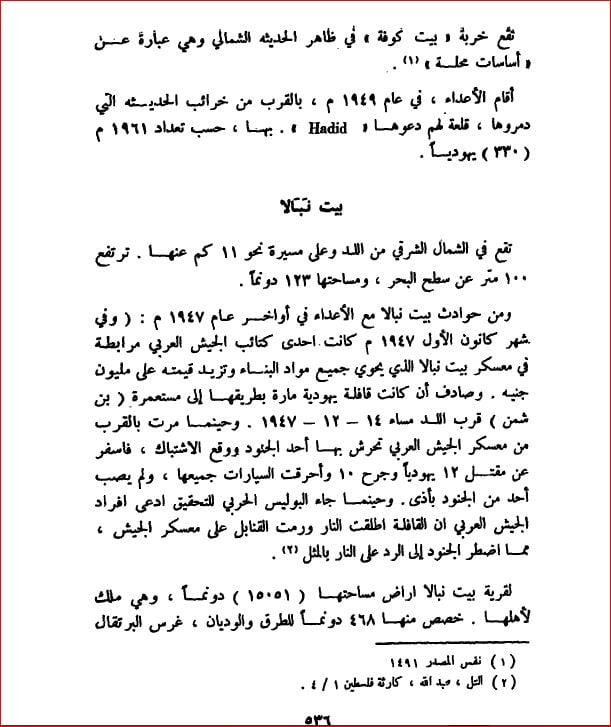 تقع خربة « بيت كوفة » في ظاهر الحديثه الشمالي وهي عبارة عن
« أساسات محلسة » (١) .
أقام الأعداء ، في عام ١٩٤٩ م ، بالقرب من خرائب الحديثه التي
دمروها ، قلعة لهم دعوها « Hadid » . بها ، حسب تعداد ١٩٦١ م
( ٣٣٠ ) يهودياً .
بيت نبالا
تقع في الشمال الشرقي من اللد وعلى مسيرة نحو ١١ كم عنها . ترتفع
١٠٠ متر عن سطح البحر ، ومساحتها ١٢٣ دونماً .
ومن حوادث بيت نبالا مع الأعداء في أواخر عام ١٩٤٧ م : ( وفي
شهر كانون الأول ١٩٤٧ م كانت احدى كتائب الجيش العربي مرابطة
في معسكر بيت نبالا الذي يحوي جميع مواد البناء وتزيد قيمته على مليون
جنيه . وصادف أن كانت قافلة يهودية مارة بطريقها إلى مستعمرة ( بن
شمن ) قرب اللد مساء ١٤ – ١٢ – ١٩٤٧ . وحينما مرت بالقرب
من معسكر الجيش العربي تحرش بها أحد الجنود ووقع الاشتباك ، فاسفر
عن مقتل ١٢ يهودياً وجرح ١٠ وأحرقت السيارات جميعها ، ولم يصب
أحد من الجنود بأذى . وحينما جاء البوليس الحربي للتحقيق ادعى افراد
الجيش العربي ان القافلة اطلقت النار ورمت القنابل على معسكر الجيش ،
مما اضطر الجنود إلى الرد على النار بالمثل (٢) .
لقرية بيت نبالا اراض مساحتها ( ١٥٠٥١ ) دونماً ، وهي ملك
لأهلها . خصص منها ٤٦٨ دونماً للطرق والوديان ، غرس البرتقال
( ١ ) نفس المصدر ١٤٩١
( ٢ ) التل ، عبد الله ، كارثة فلسطين ١ / ٤ .
٥٣٦